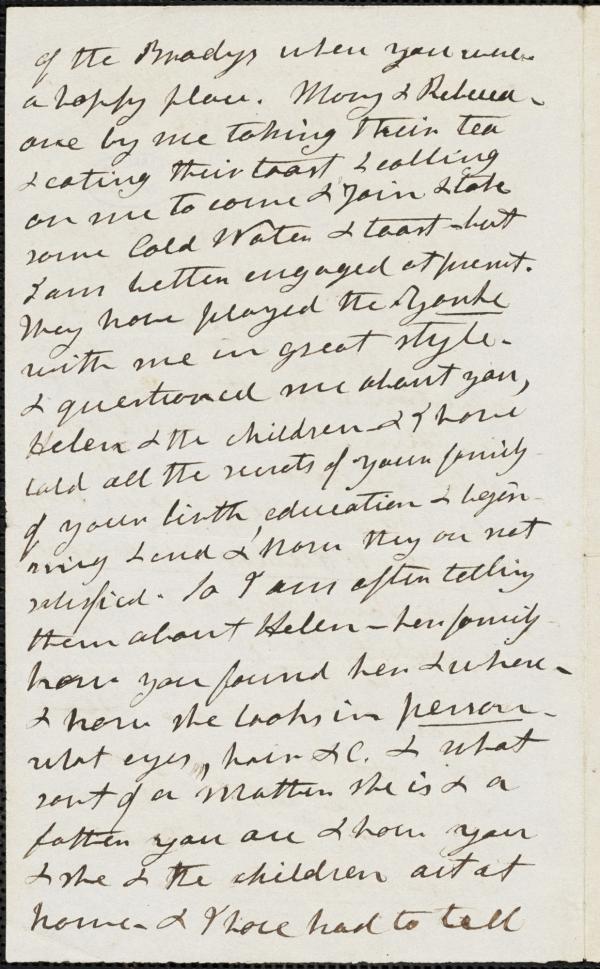 of the Bradys when you were
a happy place. Mary & Rebecca-
are by me taking their tea
& eating their toast & calling
on me to come & Join & take
some Cold Water & toast - but
I am better engaged at present.
They have played the Yanke
with me in great style-
& questioned me about you,
Helen & the children - & I have
told all the secrets of your family
of your birth, education & begin-
ning & end & now they are not
satisfied. So I am often telling
them about Helen - her family
how you found her & where-
& how she looks in person-
what eyes, hair &C. & what
sort of a Mother she is & a
father you are & how you
& she & the children act at
home - & I have had to tell